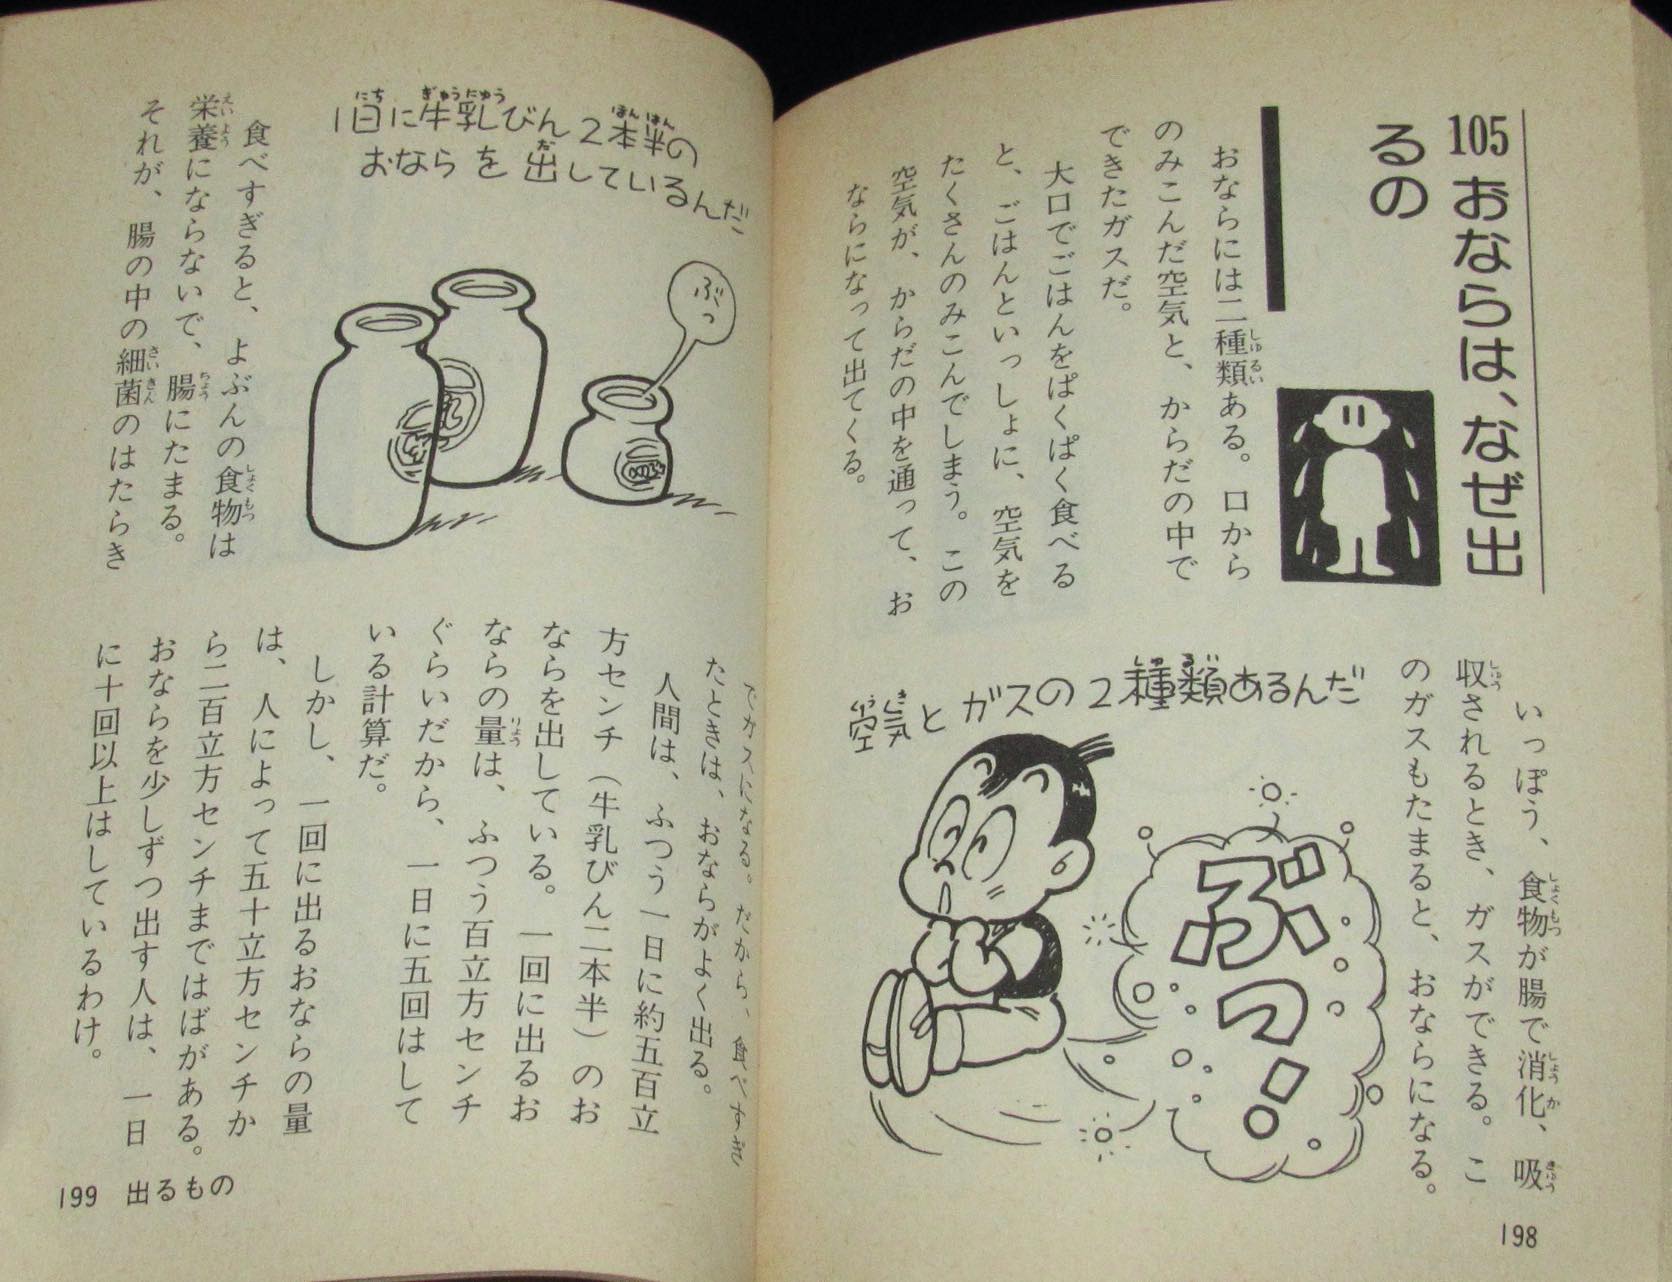 105 おならは、なぜ出
るの
おならには二種類ある。口から
のみこんだ空気と、からだの中で
できたガスだ。
大口でごはんをぱくぱく食べる
と、ごはんといっしょに、空気を
たくさんのみこんでしまう。この
空気が、からだの中を通って、お
ならになって出てくる。
いっぽう、食物が腸で消化、吸
収されるとき、ガスができる。こ
のガスもたまると、おならになる。
空気とガスの2種類あるんだ
ぶっ!
198
1日に牛乳びん2本半の
おならを出しているんだ
ぶっ
食べすぎると、よぶんの食物は
栄養にならないで、腸にたまる。
それが、腸の中の細菌のはたらき
でガスになる。だから、食べすぎ
たときは、おならがよく出る。
人間は、ふつう一日に約五百立
方センチ(牛乳びん二本半)のお
ならを出している。一回に出るお
ならの量は、ふつう百立方センチ
ぐらいだから、一日に五回はして
いる計算だ。
しかし、一回に出るおならの量
は、人によって五十立方センチか
ら二百立方センチまではばがある。
おならを少しずつ出す人は、一日
に十回以上はしているわけ。
199 出るもの